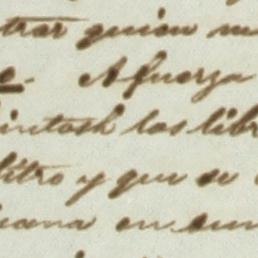 trar quien
e. A fuerza
intosh los libr
litro y que se
en sum